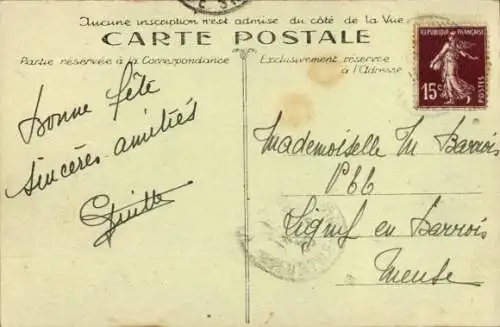 Aucune inscription n'est admise du côté de la Vue
CARTE POSTALE
Partie réservée à la Correspondance
Exclusivement réservée
à l'Adresse
REPUBLIQUE FRANÇAISE
15c
POSTES
Bonne fête
sincères amitiés
Mademoiselle M Barrois
Ligny en Barrois
Meuse